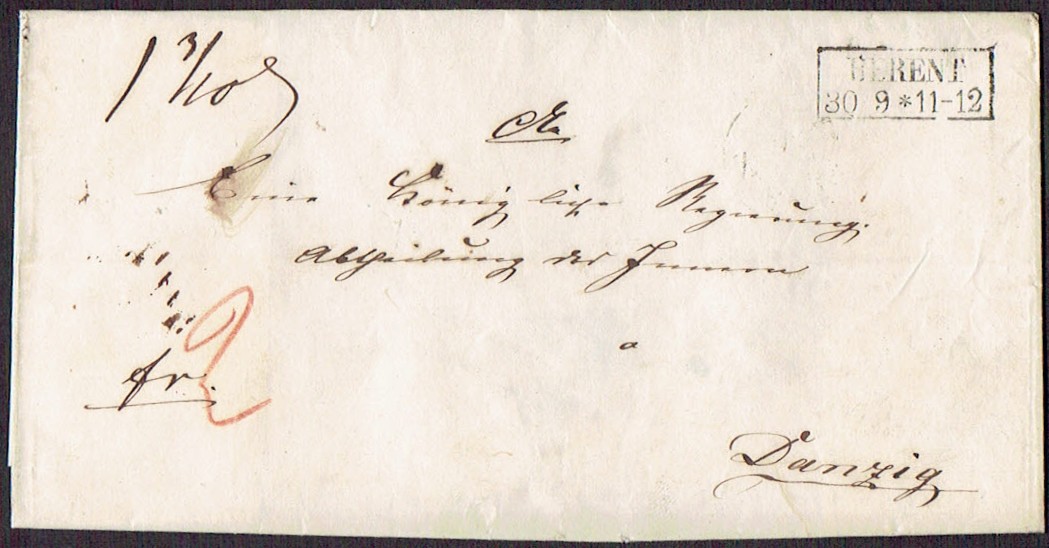 1 3/10
BERENT
30 9 * 11-12
An
Eine Königliche Regierung.
Abtheilung des Innern
a
2
fr.
Danzig